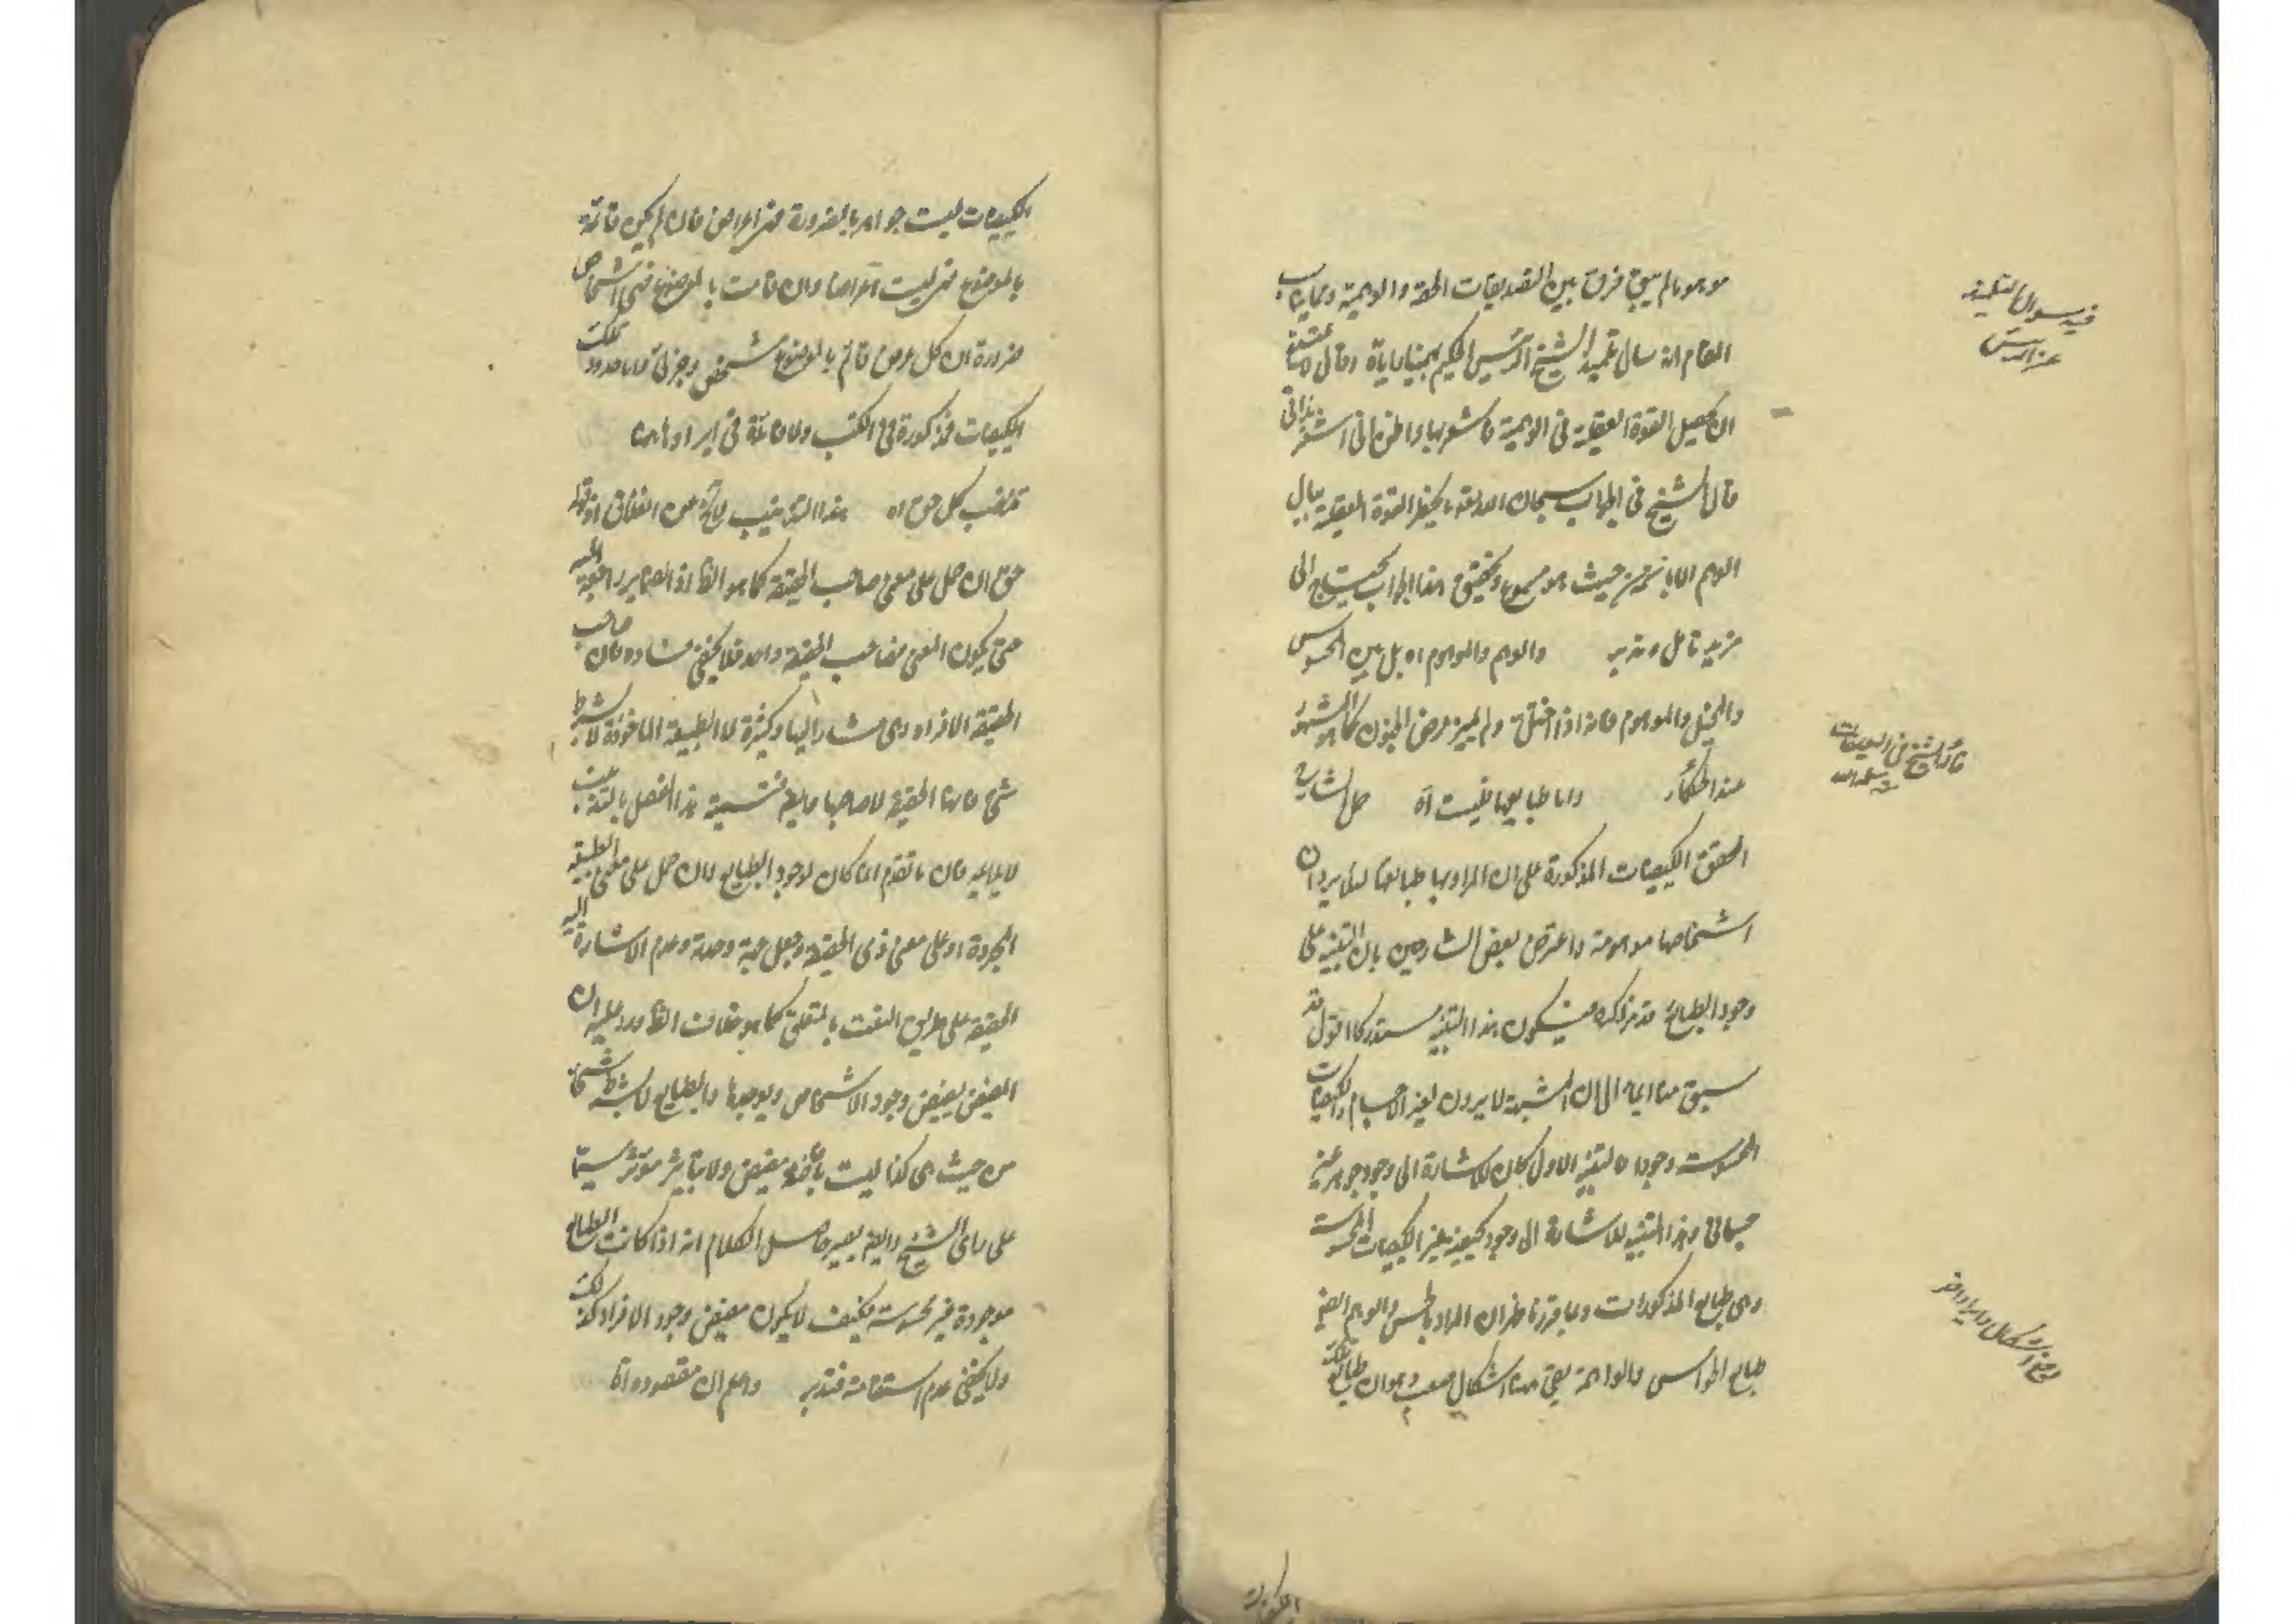 موهوما لم يبق فرق بين التصديقات الحقة والوهمية ومما يناسب
المقام انه سال تلميذ الشيخ الرئيس الحكيم بهمنيار اياه وقال
ان تحصيل القوة العقلية في الوهمية فاشعر بها واظن اني اشعر بذاتي
قال الشيخ في الجواب سبحان الله يحفظ القوة العقلية ببال
الوهم الا بانه من حيث هو مسموع وتحقيق هذا الجواب يحتاج الى
مزيد تامل وتدبر والوهم والموهوم اه بل بين المحسوس
والمخيل والموهوم فانه اذا اختلت ولم يميز عرض الجنون كما هو المشهور
عند الحكماء واما طبايعها فليست اه حمل الشارح
المحقق الكيفيات المذكورة على ان المراد بها طبايعها لئلا يرد ان
اشخاصها موهومة واعترض بعض الشارحين بان التنبيه على
وجود الطبايع قد مر ذكره فيكون هذا التنبيه مستدركا اقول قد
سبق منا ايماء الى ان المشبهة لا يرون لغير الاجسام والكيفيات
المحسوسة وجودا فالتنبيه الاول كان للاشارة الى وجود جوهر غير
جسماني وهذا التنبيه للاشارة الى وجود كيفية غير الكيفيات المحسوسة
وهي طبايع المذكورات ومما قررنا ظهر ان المراد بالحس والوهم ايضا
طبايع الحواس والواهمة بقي ههنا اشكال صعب وهو ان طبايع تلك
الكيفيات ليست جواهر بالضرورة فهي اعراض فان لم يكن قائمة
بالموضوع فهي ليست اعراضا وان قامت بالموضوع فهي اشخاص
ضرورة ان كل عرض قائم بالموضوع شخص وجزئي واما حدود تلك
الكيفيات مذكورة في الكتب ولا فائدة في ايرادها هنا
تذنيب كل حق اه هذا التذنيب
حق ان حمل على معنى صاحب الحقيقة كما هو الظ اذ الضماير راجعة اليه
حتى يكون المعنى صاحب الحقيقة واحد فلا يخفى فساده فان صاحب
الحقيقة الافراد وهي مشار اليها وكثيرة لا الطبيعة الماخوذة لا بشرط
شئ فانها الحقيقة لا صاحبها وايضا تسمية هذا الفصل بالتذنيب
لا يلايمه فان ما تقدم انما كان لوجود الطبايع وان حمل على معنى الطبيعة
المجردة او على معنى ذي الحقيقة وجعل وحدة وعدم الاشارة اليه
الحقيقة على طريق النعت بالمتعلق كما هو خلاف الظ ورد عليه ان
المفيض يفيض وجود الاشخاص ويوجدها والطبايع لا بشرط شئ
من حيث هي كذا ليست بافاضة مفيض ولا بتاثير مؤثر سيما
على راى الشيخ وايضا يصير حاصل الكلام انه اذا كانت الطبايع
موجودة غير محسوسة فكيف لا يكون مفيض وجود الافراد كذلك
ولا يخفى عدم استقامته فتدبر واعلم ان مقصوده اما
فيه سوال التلميذ
عن الرئيس
قال الشيخ في التعليقات